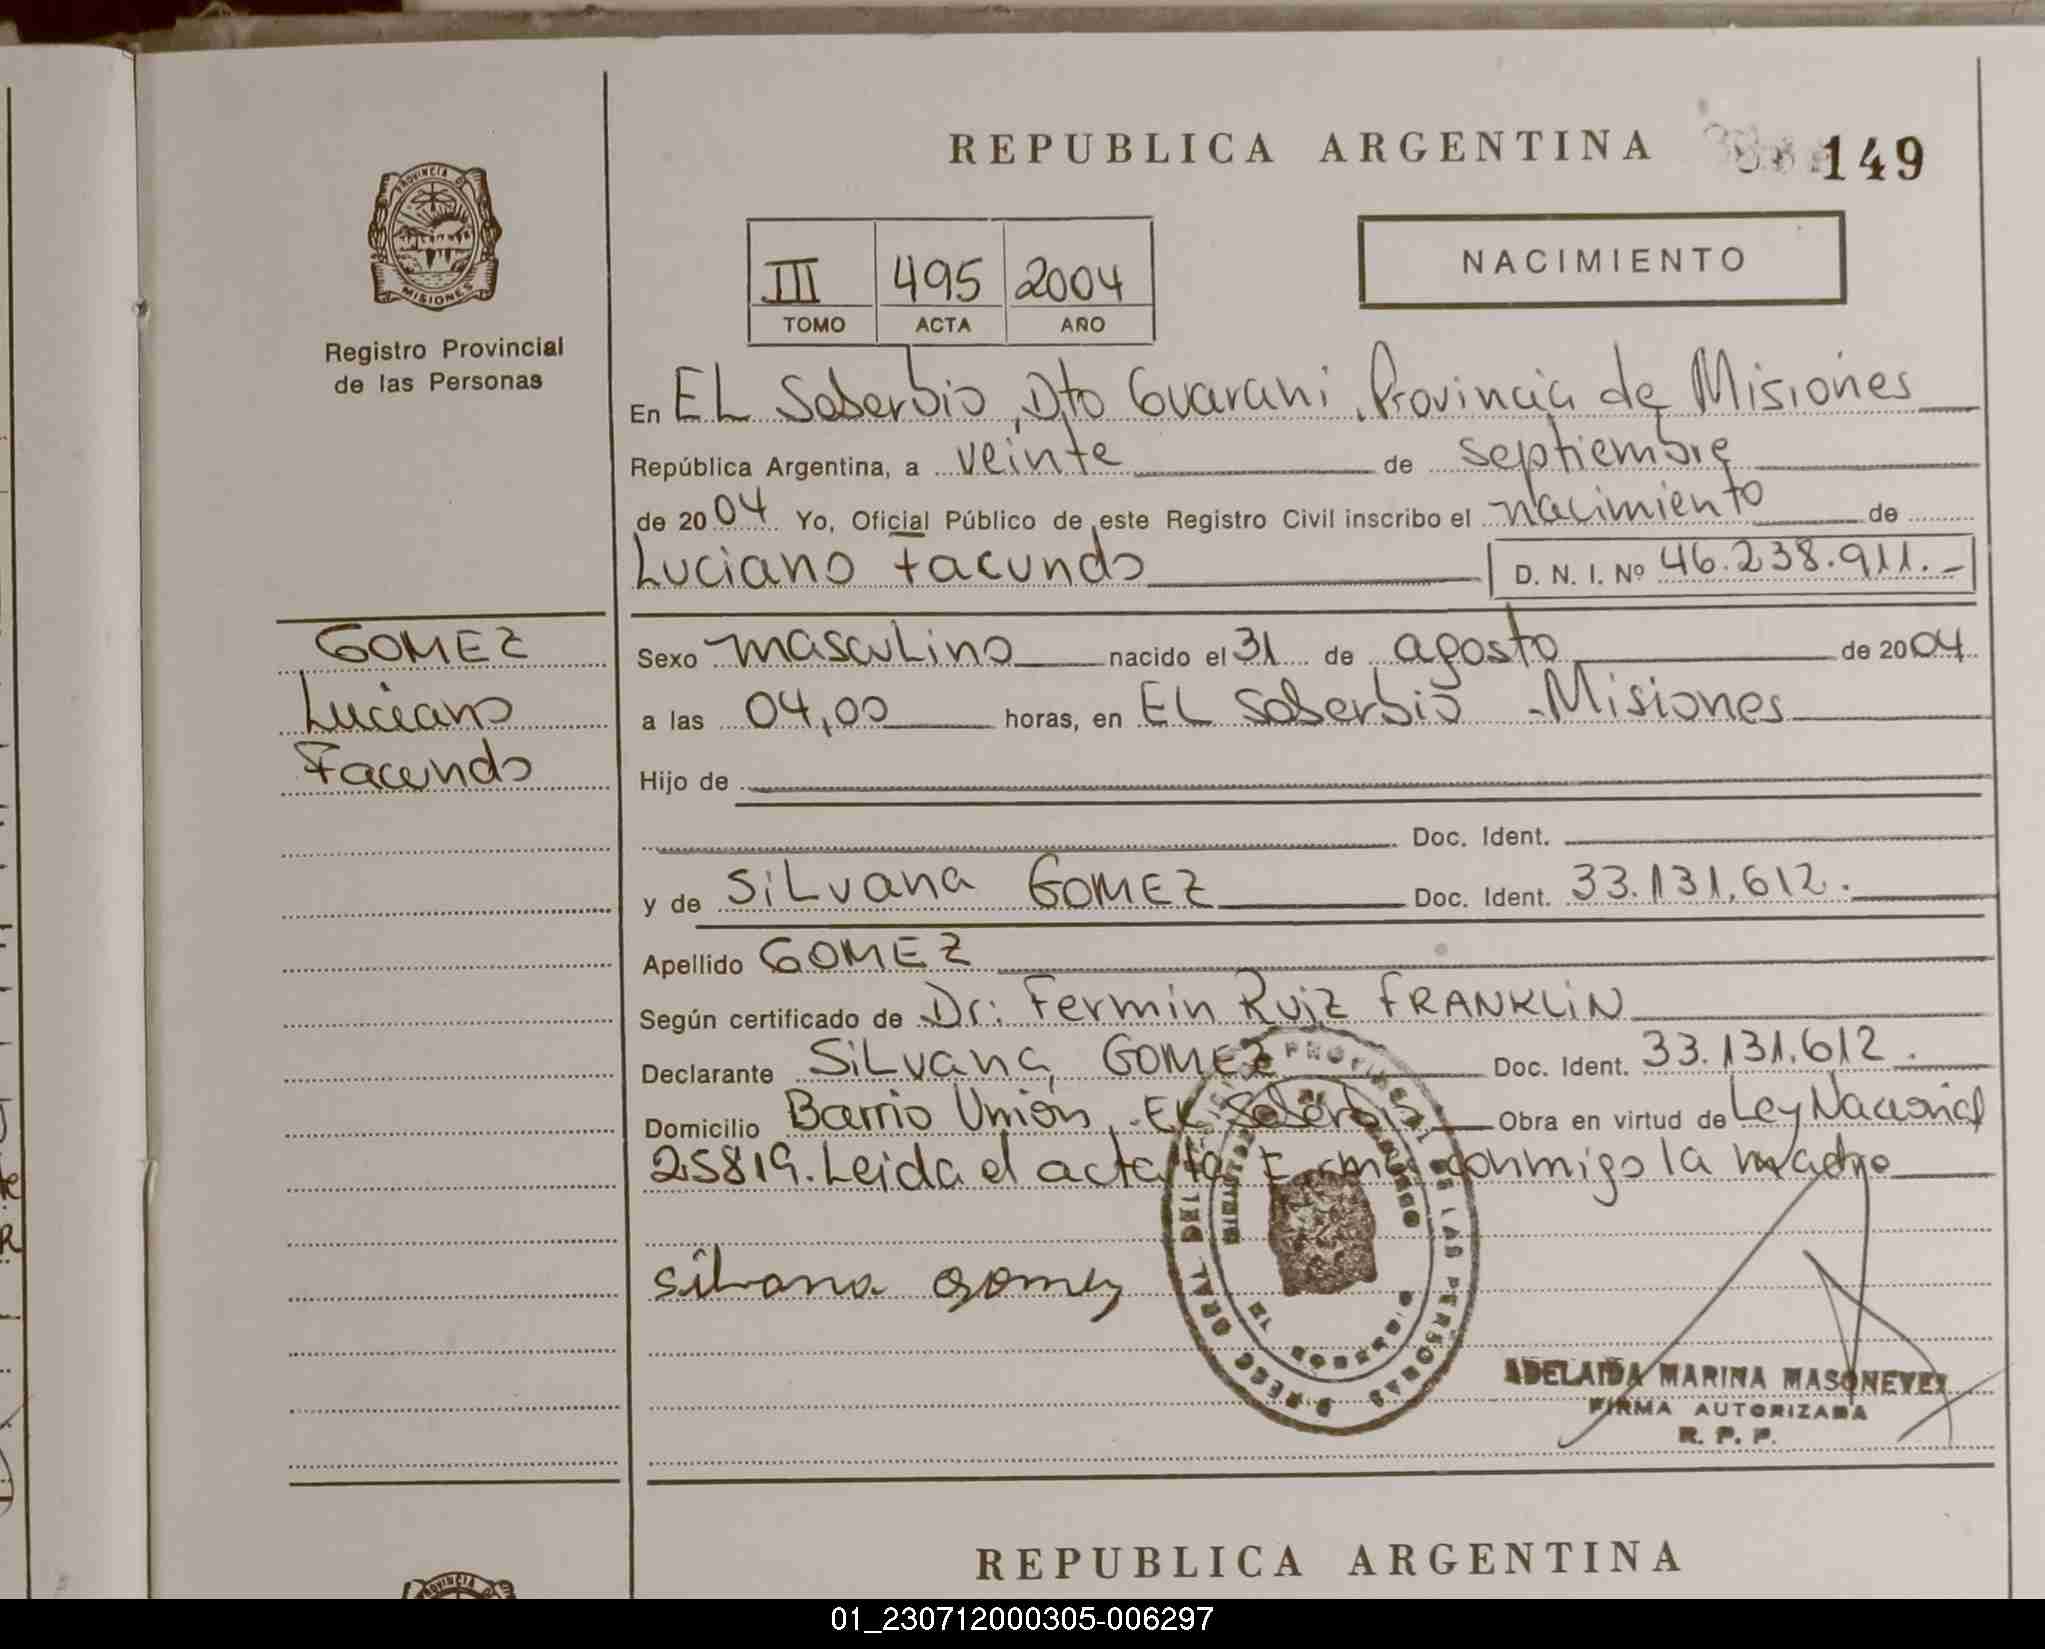 REPUBLICA ARGENTINA
149
PROVINCIA DE
MISIONES
Registro Provincial
de las Personas
III 495 2004
TOMO ACTA AÑO
NACIMIENTO
En EL Soberbio, Dto Guarani, Provincia de Misiones
República Argentina, a veinte de septiembre
de 2004 Yo, Oficial Público de este Registro Civil inscribo el nacimiento de
Luciano Facundo D. N. I. Nº 46.238.911.-
GOMEZ
Luciano
Facundo
Sexo masculino nacido el 31 de agosto de 2004
a las 04,00 horas, en EL Soberbio - Misiones
Hijo de
Doc. Ident.
y de SiLvana GOMEZ Doc. Ident. 33.131.612.
Apellido GOMEZ
Según certificado de Dr: Fermin Ruiz FRANKLiN
Declarante SiLvana GOMEZ Doc. Ident. 33.131.612.
Domicilio Barrio Unión, - EL Soberbio Obra en virtud de Ley Nacional
25819. Leida el acta, la Firma conmigo la madre
silvana gomez
DE LAS PERSONAS
ADELAIDA MARINA MASONEVEZ
FIRMA AUTORIZADA
R. P. P.
REPUBLICA ARGENTINA
PROVINCIA DE
01_230712000305-006297